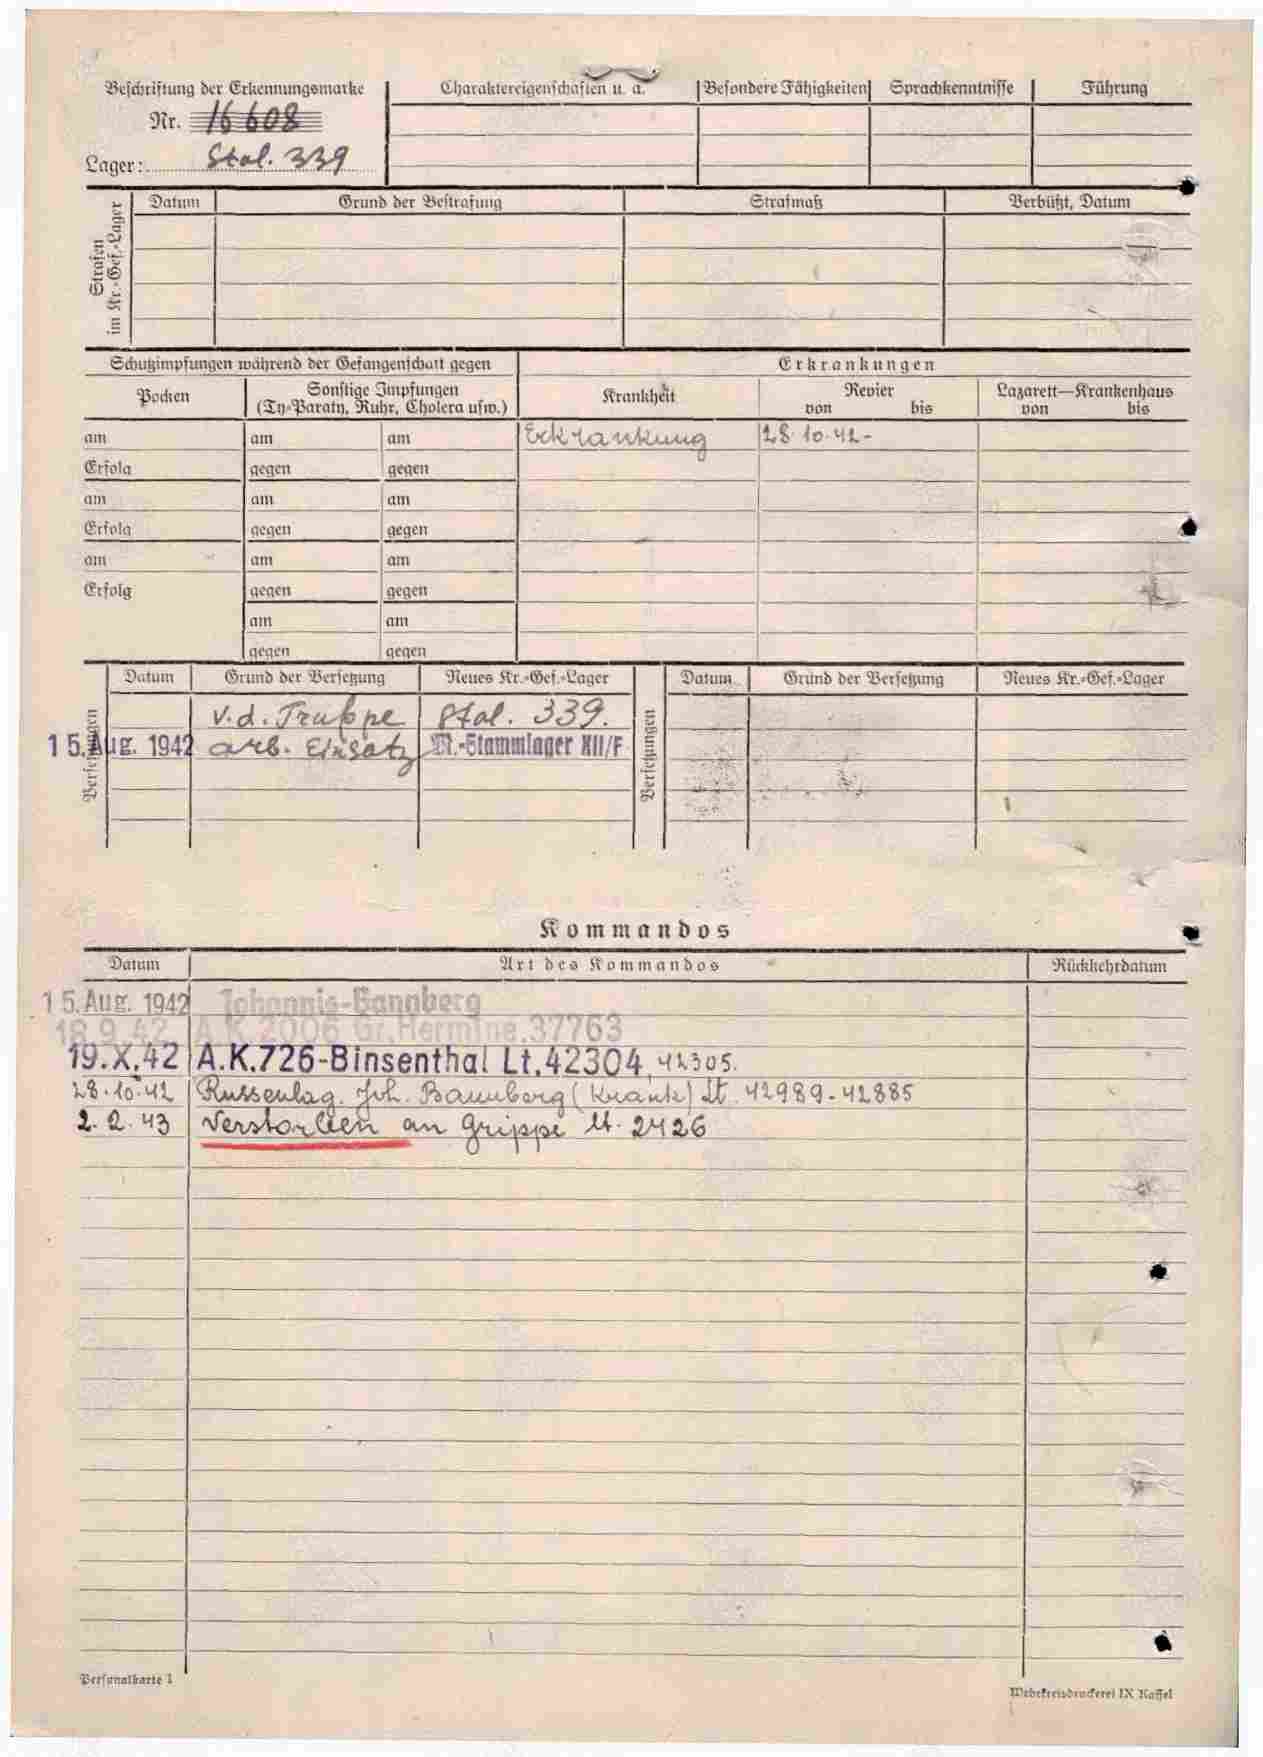 Beschriftung der Erkennungsmarke
Nr. 16608
Lager: Stal. 339
Charaktereigenschaften u. a. Besondere Fähigkeiten Sprachkenntnisse Führung
Strafen im Kr.-Gef.-Lager
Datum Grund der Bestrafung Strafmaß Verbüßt, Datum
Schutzimpfungen während der Gefangenschaft gegen Erkrankungen
Pocken Sonstige Impfungen (Ty-Paraty, Ruhr, Cholera usw.) Krankheit Revier von bis Lazarett—Krankenhaus von bis
am am am Erkrankung 28.10.42-
Erfolg gegen gegen
am am am
Erfolg gegen gegen
am am am
Erfolg gegen gegen
am am
gegen gegen
Versetzungen Datum Grund der Versetzung Neues Kr.-Gef.-Lager Versetzungen Datum Grund der Versetzung Neues Kr.-Gef.-Lager
v. d. Truppe Stal. 339.
15. Aug. 1942 arb. Einsatz M.-Stammlager XII/F
Kommandos
Datum Art des Kommandos Rückkehrdatum
15. Aug. 1942 Johannis-Bannberg
18.9.42 A.K.2006 Gr. Hermine.37763
19.X.42 A.K.726-Binsenthal Lt.42304, 42305.
28.10.42 Russenlag. Joh. Bannberg (Krank) Lt. 42989-42885
2.2.43 Verstorben an Grippe lt. 2426
Personalkarte 1
Wehrkreisdruckerei IX Kassel